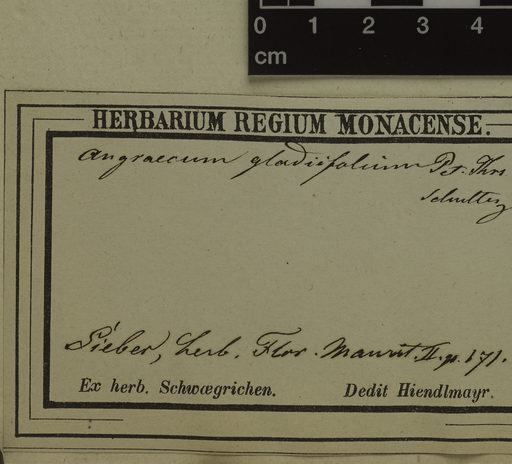 0 1 2 3 4
cm
HERBARIUM REGIUM MONACENSE.
Angraecum gladiifolium Pet. Thrs
Schultz
Sieber, herb. Flor. Maurit. II. p. 171.
Ex herb. Schwægrichen. Dedit Hiendlmayr.